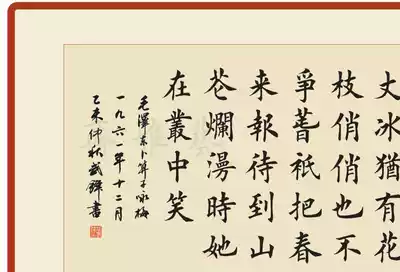 丈冰猶有花
枝俏俏也不
爭萅祇把春
来報待到山
芲爛漫時她
在叢中笑
毛澤东卜算子咏梅
一九六一年十二月
乙未仲秋武書